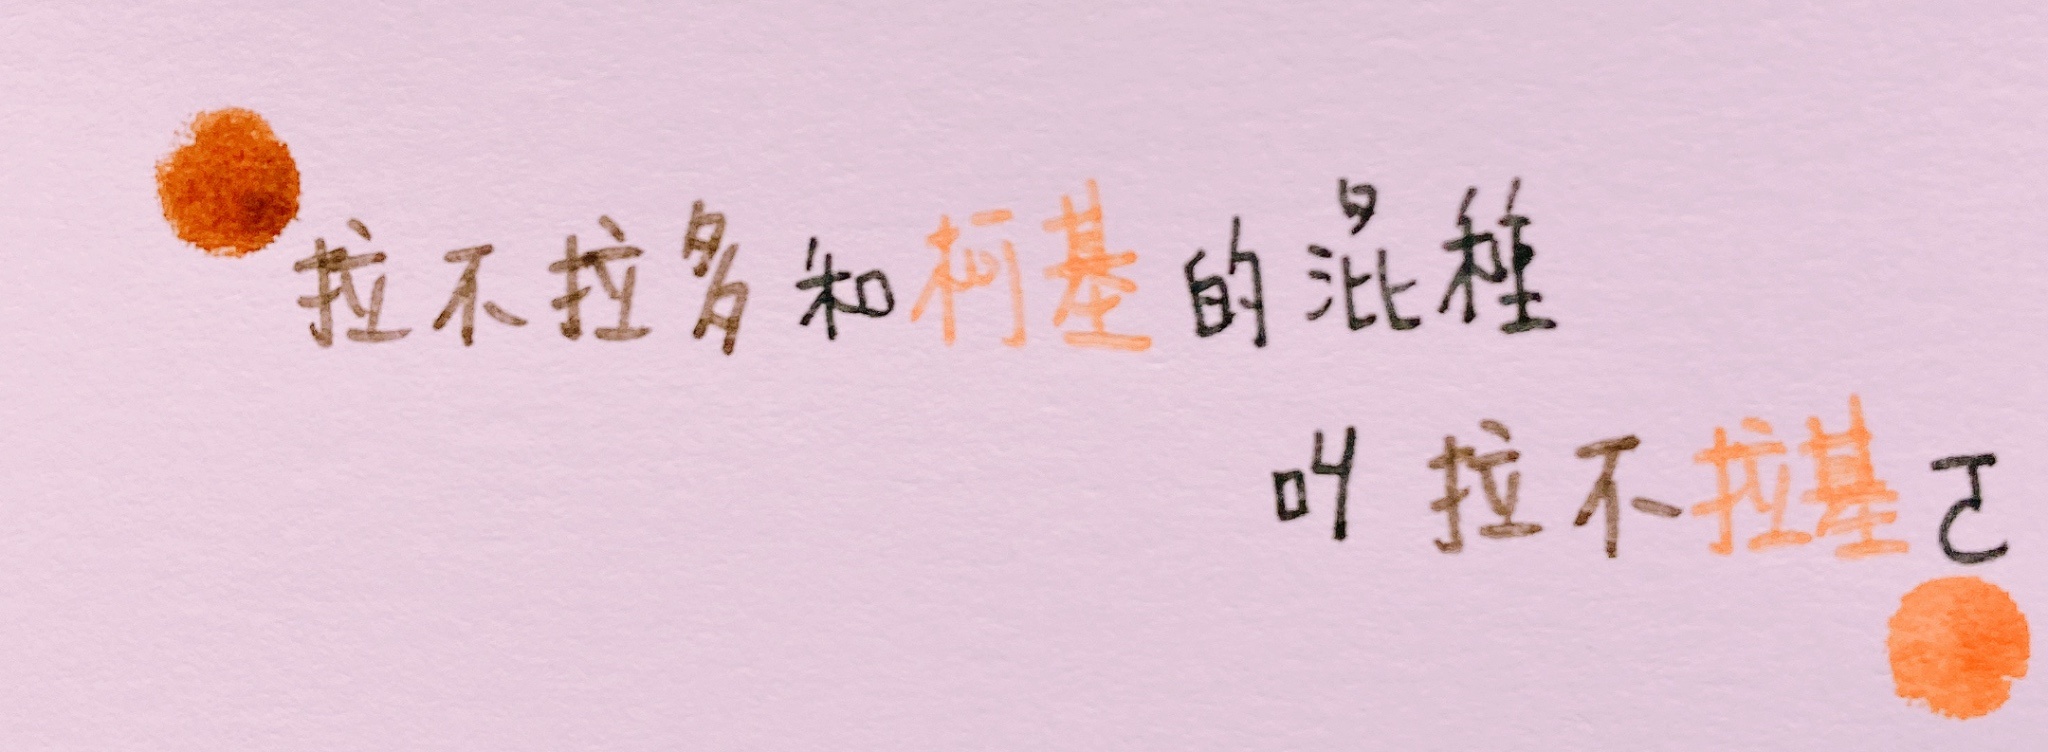 拉不拉多和柯基的混種
叫拉不拉基